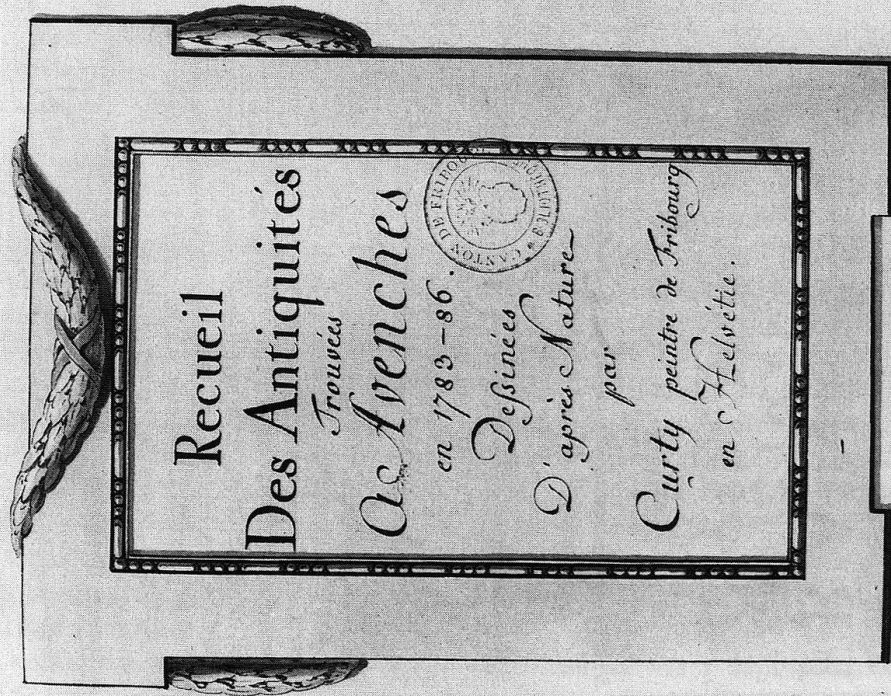 Recueil
Des Antiquités
Trouvées
A Avenches
en 1783-86.
Deſsinées
D'après Nature
par
Curty peintre de Fribourg
en Helvétie.
CANTON DE FRIBOURG